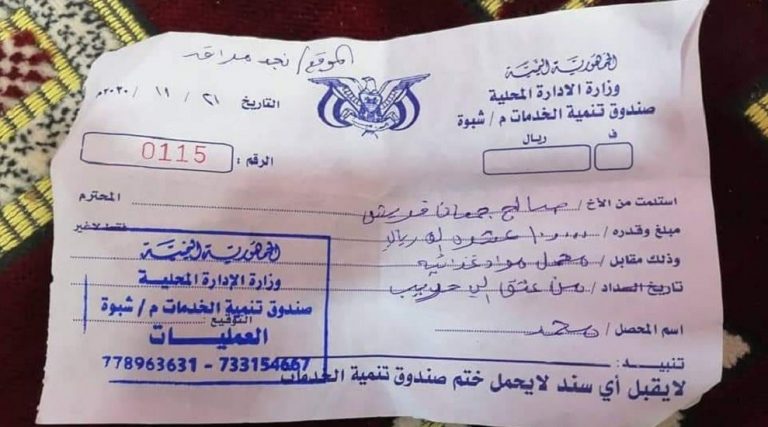 الموقع / نجد مرقد
الجمهورية اليمنية
وزارة الإدارة المحلية
صندوق تنمية الخدمات م/ شبوة
التاريخ ٢١ / ١١ / ٢٠٢٠م
ف ريال
الرقم : 0115
استلمت من الأخ / صالح جمعان المحترم
مبلغ وقدره / عشره الف ريال فقط لاغير
وذلك مقابل / محمل مواد غذائيه
تاريخ السداد / من عتق الى حريب
اسم المحصل / محمد
التوقيع
الجمهورية اليمنية
وزارة الإدارة المحلية
صندوق تنمية الخدمات م/ شبوة
العمليات
778963631 - 733154667
تنبيه :
لايقبل أي سند لايحمل ختم صندوق تنمية الخدمات